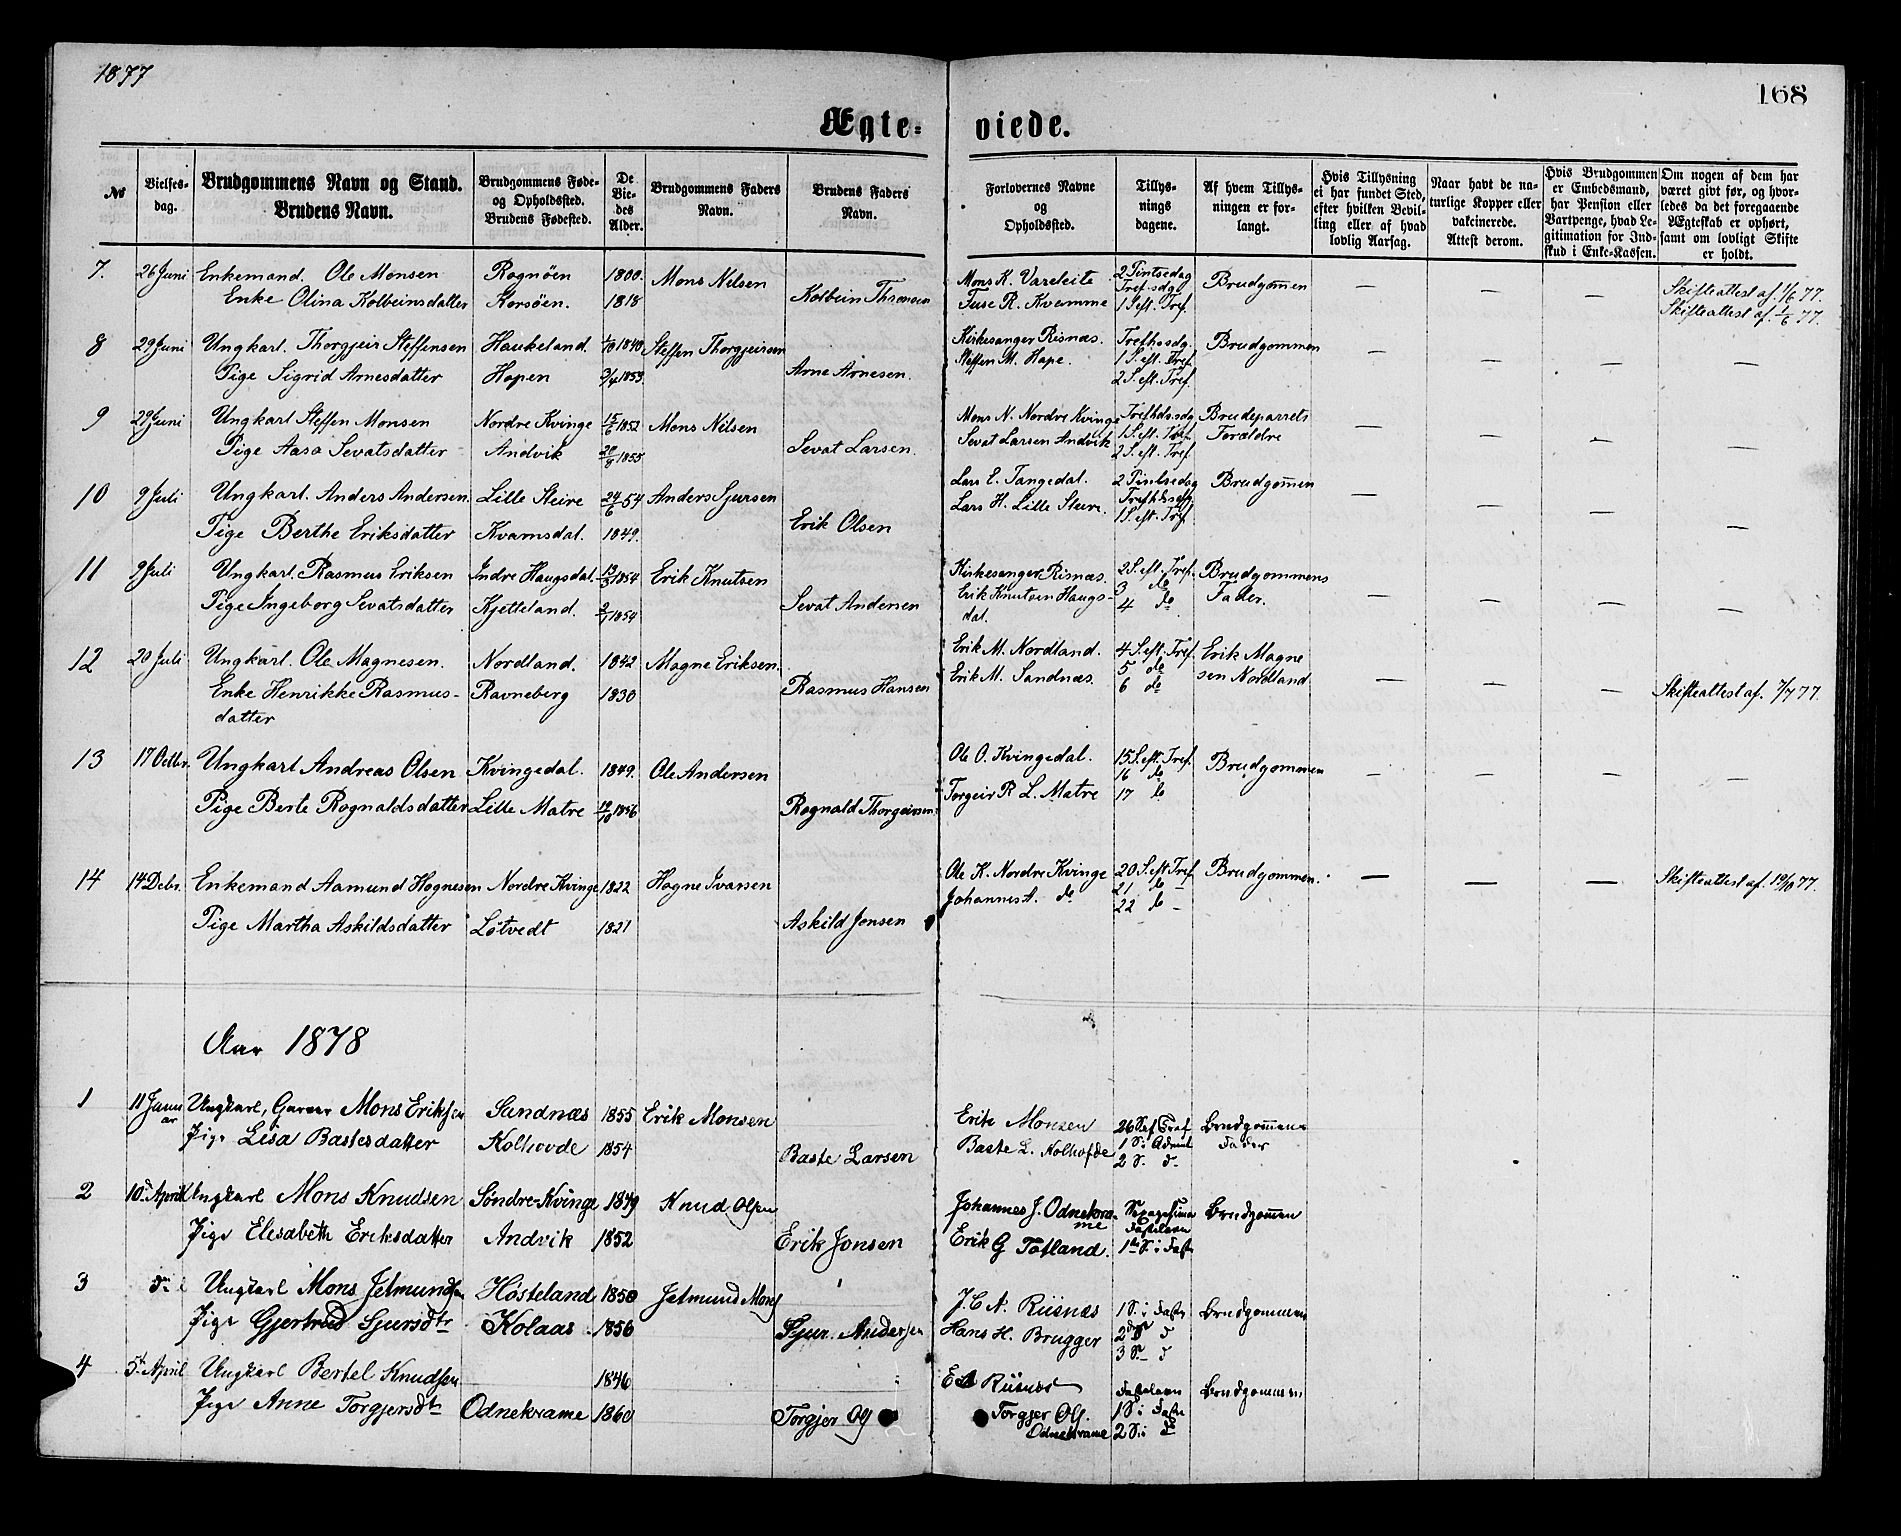 1877
168
Ægteviede.
№
Vielsesdag.
Brudgommens Navn og Stand.
Brudens Navn.
Brudgommens Føde- og Opholdssted.
Brudens Fødested.
De Viedes Alder.
Brudgommens Faders Navn.
Brudens Faders Navn.
Forlovernes Navne og Opholdssted.
Tillysningsdagene.
Af hvem Tillysningen er forlangt.
Hvis Tillysning ei har fundet Sted, efter hvilken Bevilling eller af hvad lovlig Aarsag.
Naar havt de naturlige Kopper eller vakcinerede. Attest derom.
Hvis Brudgommen er Embedsmand, har Pension eller Vartpenge, hvad Legitimation for Indskud i Enke-Kassen.
Om nogen af dem har været givt før, og hvorledes da det foregaaende Ægteskab er ophørt, samt om lovligt Skifte er holdt.
7. 26 Juni Enkemand. Ole Monsen Rognöen 1800. Mons Nilsen Mons K. Vareleite 2 Pintsedag Brudgom̅en — — — Skifteattest af. 1/6 77.
Enke Olina Kolbeinsdatter Korsöen. 1818 Kolbein Thronsen Tuse R. Kvamme Tref.sdg 1 S. eft. Tref. Skifteattest af. 1/6 77.
8 29 Juni Ungkarl. Thorgjeir Steffensen Haukeland. 1/10 1840 Steffen Thorgjeirsen Kirkesanger Risnæs. Trefh.sdg. Brudgommen — — — —
Pige Sigrid Arnesdatter Hopen 3/4 1853 Arne Arnesen. Steffen M. Hope. 1 S. eft. Tref.
2 S. eft. Tref.
9 29 Juni Ungkarl Steffen Monsen Nordre Kvinge 15/6 1852 Mons Nilsen Mons N. Nordre Kvinge Trefhds.sdg Brudeparrets — — — —
Pige Aasa Sevatsdatter Andvik 20/8 1855 Sevat Larsen. Sevat Larsen Andvik 1 S. eft. Tref Forældre
2 S. eft. Tref
10 9 Juli Ungkarl. Anders Andersen. Lille Steire 24/6 54 Anders Sjursen Lars E. Tangedal. 2 Pintsedag Brudgom̅en — — — —
Pige Berthe Eriksdatter Kvamsdal. 1849. Erik Olsen Lars H. Lille Steire. Trefhdssdg.
1 S. eft. Tref.
11 9 Juli Ungkarl. Rasmus Eriksen Indre Haugsdal. 1854 Erik Knutsen Kirkesanger Risnæs. 2 S. eft. Tref. Brudgommens — — — —
Pige Ingeborg Sevatsdatter Kjetteland. 1854 Sevat Andersen Erik Knutsen Haugsdal. 3 do Fader.
4 do
12 20 Juli Ungkarl. Ole Magnesen. Nordland. 1842 Magne Eriksen. Erik M. Nordland. 4 S. eft. Tref. Erik Magne — — —
Enke Henrikke Rasmusdatter Ravneberg 1830 Rasmus Hansen Erik M. Sandnæs. 5 do sen Nordland. Skifteattest af. 7/7 77.
6 do
13 17 Octbr. Ungkarl Andreas Olsen Kvingedal. 1849. Ole Andersen Ole O. Kvingedal. 15 S. eft. Tref. Brudgommen — — — —
Pige Berte Rognaldsdatter Lille Matre 12/10 1856 Rognald Thorgeirsen. Torgeir R L. Matre 16 do
17 do
14 14 Debr. Enkemand Aamund Hognesen Nordre Kvinge 1822 Hogne Ivarsen Ole K. Nordre Kvinge 20 S. eft Tref Brudgommen. — — — Skifteattest af. 19/10 77.
Pige Martha Askildsdatter Løtvedt 1821 Askild Jonsen Johannes A. do 21 do –
22 do –
Aar 1878
1 11 Januar Ungkarl, Mons Eriksen Sandnæs 1855 Erik Monsen Erik Monsen 26 S. ef Tref Brudgom̅ens
Pige Lisa Bastesdatter Kolhovde 1854 Baste Larsen Baste L. Kolhofde 1 S. i Advent Fader
2 S. d
2 10 April Ungkarl Mons Knudsen Søndre-Kvinge 1849 Knud Olsen Johannes J. Odnekrame Brudgom̅en
Pige Elesabeth Eriksdatter Andvik 1852 Erik Jonsen Erik G Totland. Fastelavn
1te S. i Faste
3 d Ungkarl Mons Jetmundsen Høsteland 1850 Jetmund Mons J. C A. Riisnæs 1 S. i Faste Brudgommen
Pige Gjertrud Sjursdtr Kolaas 1856 Sjur. Andersen Hans H. Brugger 2 S d
3 S. d
4 5t April Ungkarl Bertel Knudsen 1846 Riisnæs Fastelavn Brudgommen
Pige Anne Torgjersdtr Odnekrame 1860 Torgjer Ols Torgjer Ols. 1 S. i Faste
Odnekrame 2 S. i d